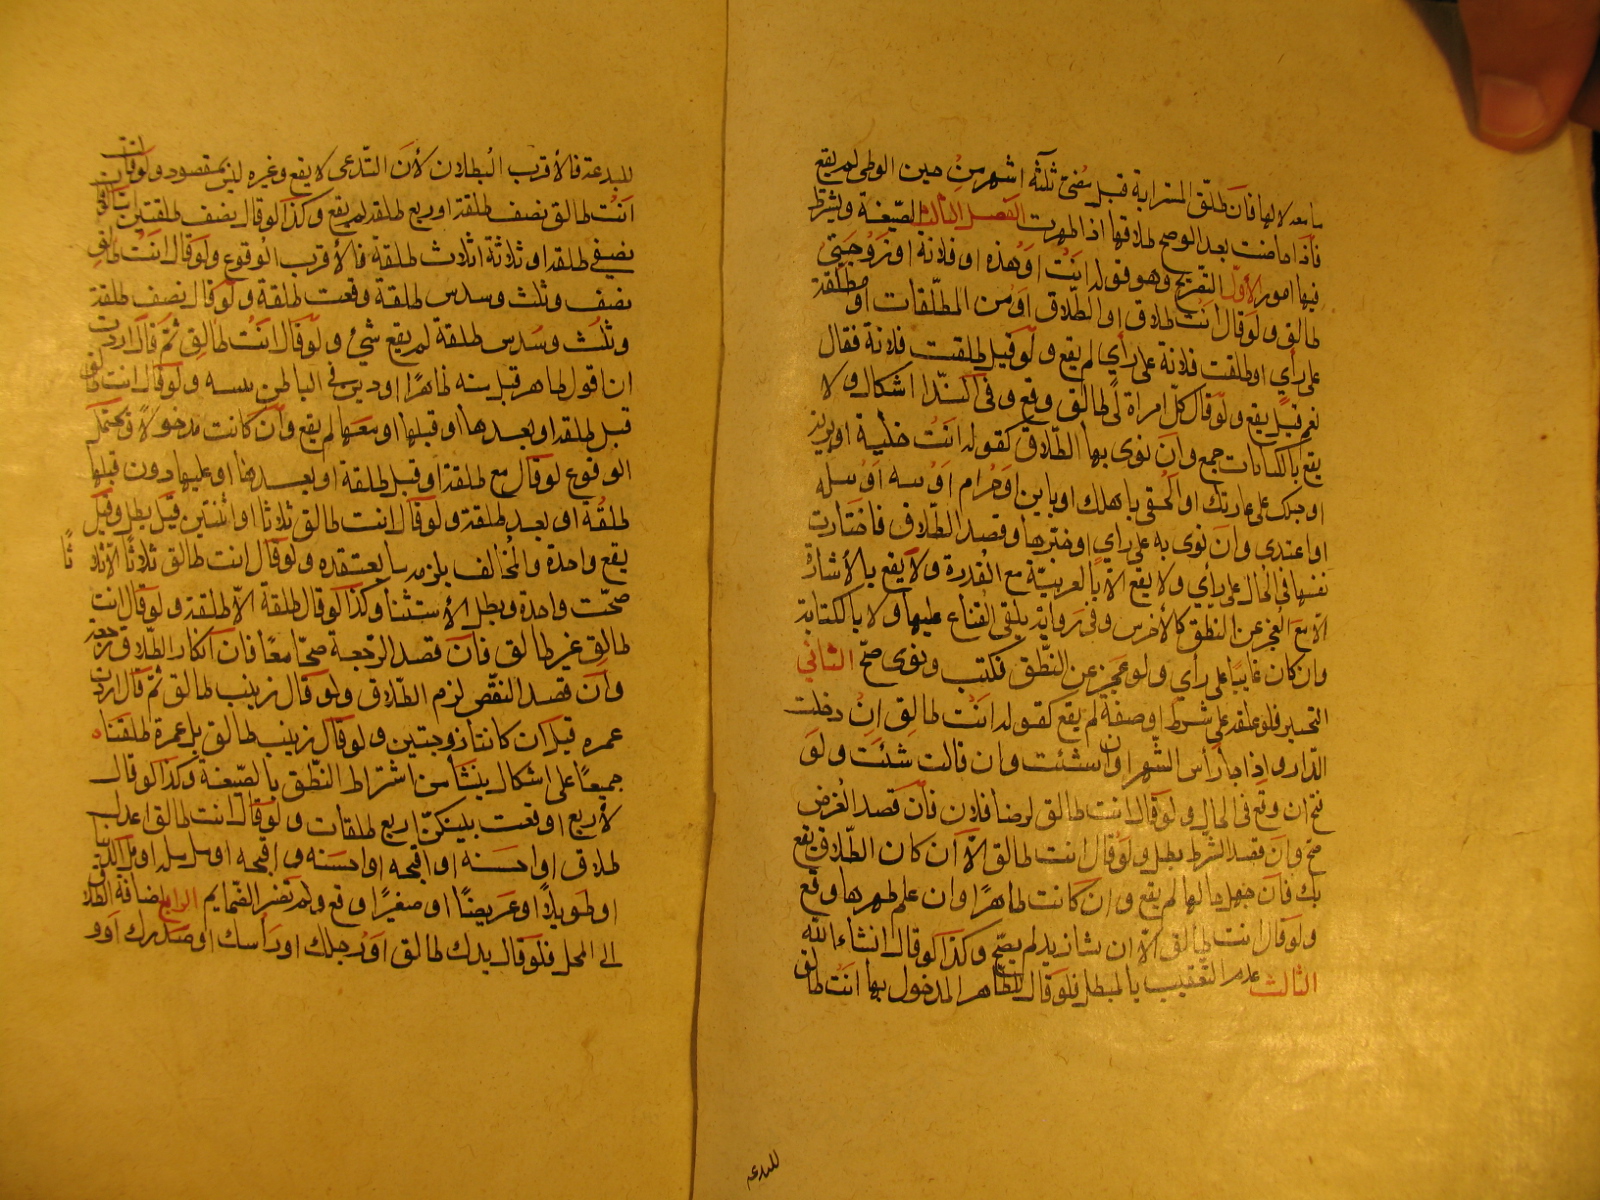 ما بعد لالها فان طلق المسترابة قبل مضى ثلثة اشهر من حين الوطى لم يقع
فاذا مامنت بعد الوضع طلاقها اذا طهرت الفصل الثالث الصيغة ويشترط
فيها امور الاول التصريح وهو قوله انت او هذه او فلانة او زوجتى
طالق ولو قال انت طلاق او الطلاق او من المطلقات او مطلقة
على رأي او طلقت فلانة على رأي لم يقع ولو قيل طلقت فلانة فقال
نعم قيل يقع ولو قال كل امراة لى طالق وقع وفى النداء اشكال ولا
يقع بالكنايات جمع وان نوى بها الطلاق كقوله انت خلية او برية
او حبلك على غاربك او الحقى باهلك او باين او حرام او بتة او بتلة
او اعتدى وان نوى به على راي او خيرها وقصد الطلاق فاختارت
نفسها فى الحال على رأي ولا يقع الا بالعربية مع القدرة ولا يقع بالأشارة
الا مع العجز عن النطق كالأخرس وفى رواية يلقى القناع عليها ولا بالكتابة
وان كان غايبًا على رأي ولو عجز عن النطق فكتب ونوى صح الثاني
التخيير فلو علقه على شرط او صفة لم يقع كقوله انت طالق ان دخلت
الدار واذا جاء رأس الشهر او ان شئت وان قالت شئت ولو
فتح ان وقع فى الحال ولو قال انت طالق لرضا فلان فان قصد الغرض
صح وان قصد الشرط بطل ولو قال انت طالق الا ان كان الطلاق يقع
بك فان جهل حالها لم يقع وان كانت طاهرًا وان علم طهرها وقع
ولو قال انت طالق الا ان يشاء زيد لم يصح وكذا لو قال ان شاء الله
الثالث عدم التعقيب بالمبطل فلو قال للطاهر المدخول بها انت طالق
للبدعة
للبدعة فالأقرب البطلان لأن البدعى لا يقع وغيره ليس بمقصود ولو قال
انت طالق نصف طلقة او ربع طلقة لم يقع وكذا لو قال نصف طلقتين
نصفي طلقة او ثلاثة اثلاث طلقة فالأقرب الوقوع ولو قال انت طالق
نصف وثلث وسدس طلقة وقعت طلقة ولو قال نصف طلقة
وثلث وسدس طلقة لم يقع شئ ولو قال انت طالق ثم قال اردت
ان اقول طاهر قبل منه ظاهرًا ودين فى الباطن بنيته ولو قال انت طالق
قبل طلقة او بعدها او قبلها او معها لم يقع وان كانت مدخولاً ويحتمل
الوقوع لو قال مع طلقة او قبل طلقة او بعدها او عليها دون قبلها
طلقة او بعد طلقة ولو قال انت طالق ثلاثا او اثنتين قيل بطل وقيل
يقع واحدة والمخالف يلزمه ما يعتقده ولو قال انت طالق ثلاثًا الا ثلاثًا
صحت واحدة وبطل الأستثناء وكذا لو قال طلقة الا طلقة ولو قال انت
طالق غير طالق فان قصد الرجعة صح معًا فان انكار الطلاق رجعة
وان قصد النقض لزم الطلاق ولو قال زينب طالق ثم قال اردت
عمرة قبل ان كانتا زوجتين ولو قال زينب طالق بل عمرة طلقتا
جميعًا على اشكال ينشأ من اشتراط النطق بالصيغة وكذا لو قال
لأربع اوقعت بينكن اربع طلقات ولو قال انت طالق اعدل
طلاق او احسنه او اقبحه او احسنه واقبحه
او طويلاً او عريضًا او صغيرًا وقع ولم تضر الضمايم الرابع اضافة الطلاق
الى المحل فلو قال يدك طالق او رجلك او رأسك او صدرك او و